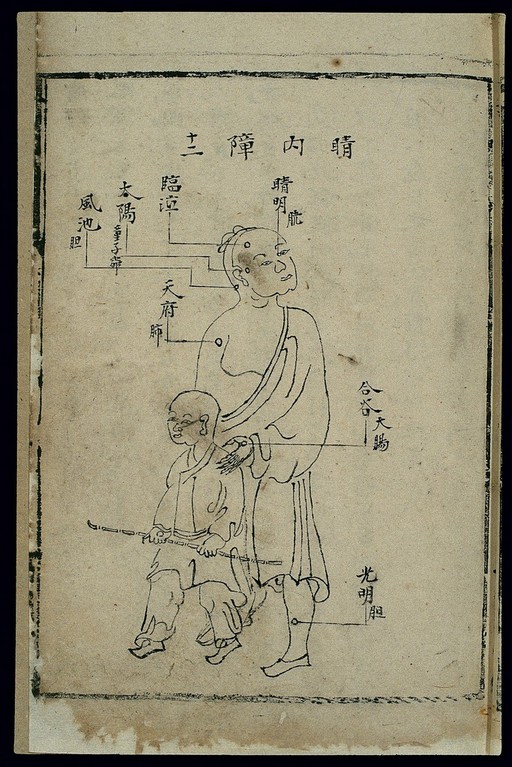 睛内障十二
睛明
胱
臨泣
太陽
童子窌
風池
胆
天府
肺
合谷
大腸
光明
胆